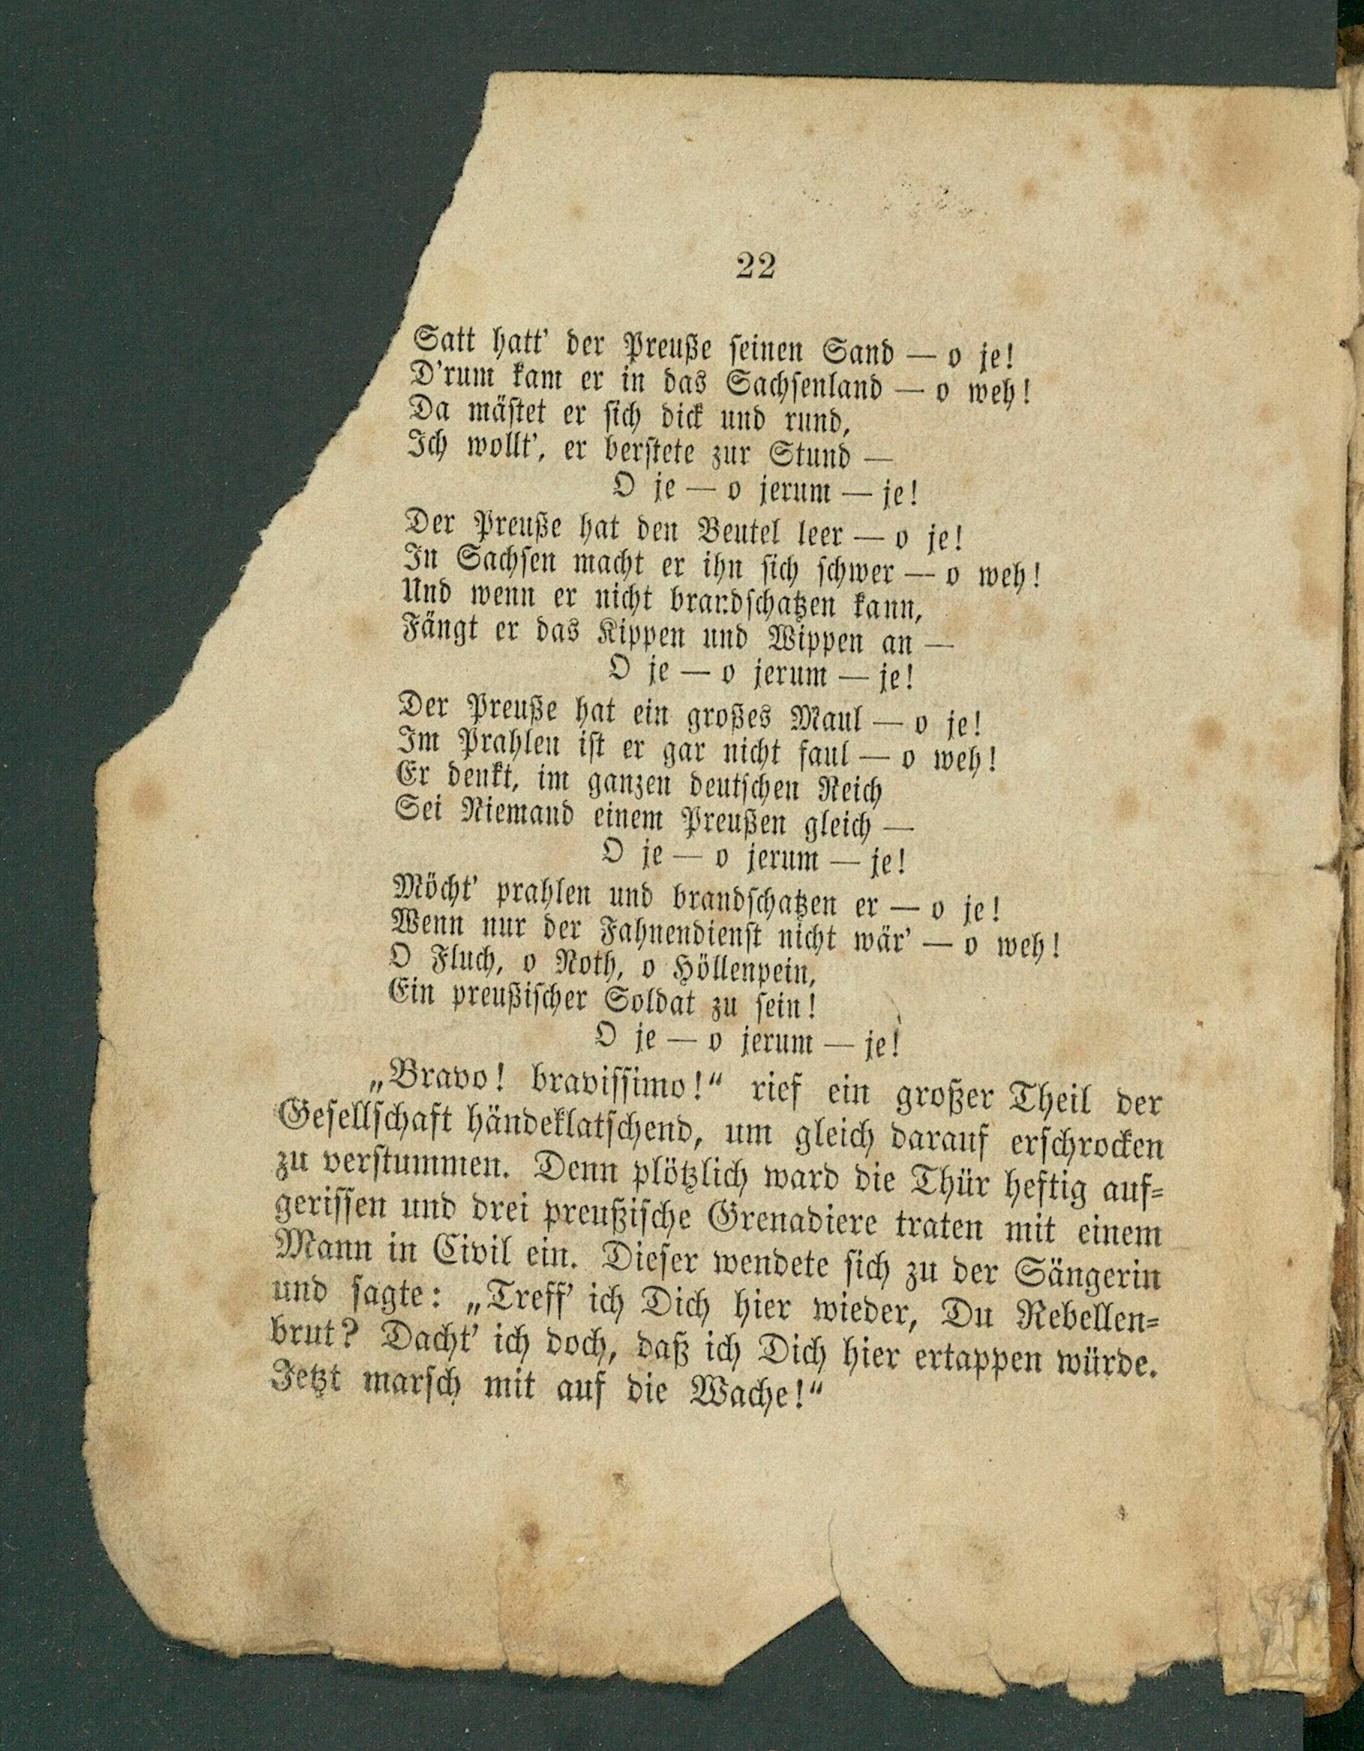 22
Satt hatt' der Preuße seinen Sand — o je!
D'rum kam er in das Sachsenland — o weh!
Da mästet er sich dick und rund,
Ich wollt', er berstete zur Stund —
O je — o jerum — je!
Der Preuße hat den Beutel leer — o je!
In Sachsen macht er ihn sich schwer — o weh!
Und wenn er nicht brandschatzen kann,
Fängt er das Kippen und Wippen an —
O je — o jerum — je!
Der Preuße hat ein großes Maul — o je!
Im Prahlen ist er gar nicht faul — o weh!
Er denkt, im ganzen deutschen Reich
Sei Niemand einem Preußen gleich —
O je — o jerum — je!
Möcht' prahlen und brandschatzen er — o je!
Wenn nur der Fahnendienst nicht wär' — o weh!
O Fluch, o Noth, o Höllenpein,
Ein preußischer Soldat zu sein!
O je — o jerum — je!
„Bravo! bravissimo!“ rief ein großer Theil der
Gesellschaft händeklatschend, um gleich darauf erschrocken
zu verstummen. Denn plötzlich ward die Thür heftig auf-
gerissen und drei preußische Grenadiere traten mit einem
Mann in Civil ein. Dieser wendete sich zu der Sängerin
und sagte: „Treff' ich Dich hier wieder, Du Rebellen-
brut? Dacht' ich doch, daß ich Dich hier ertappen würde.
Jetzt marsch mit auf die Wache!“